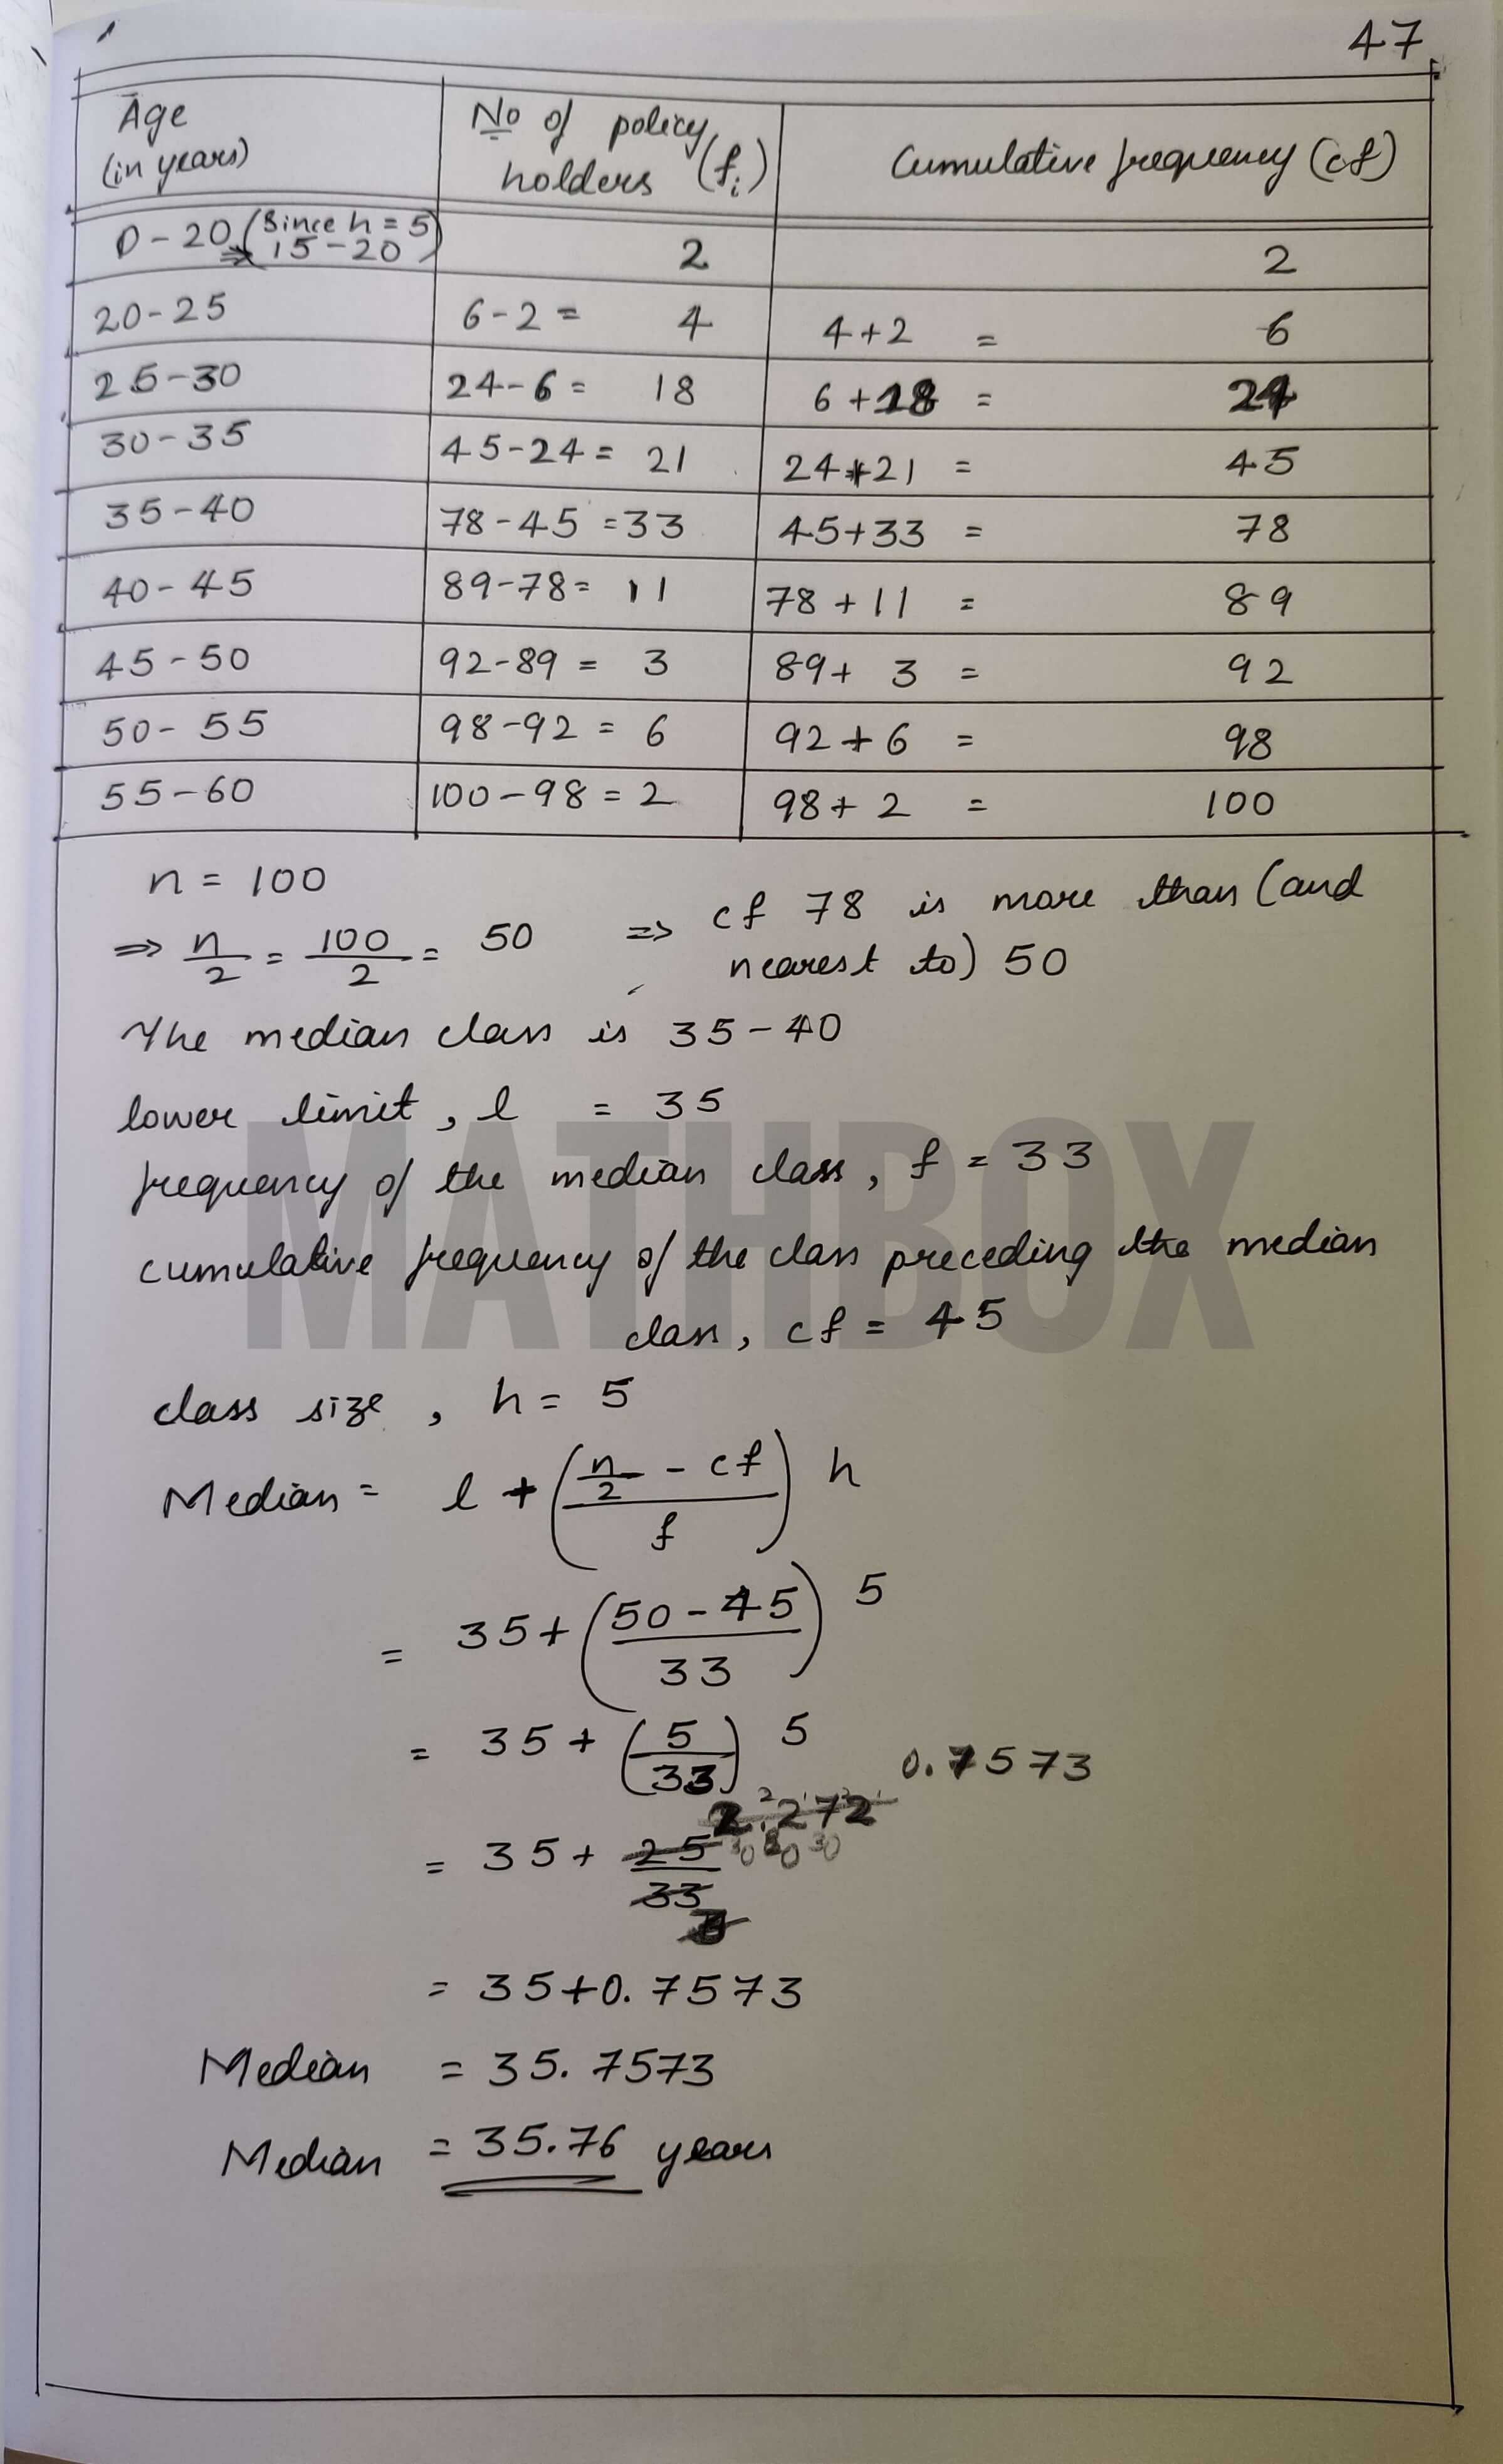 47
Age (in years) No of policy holders (fi) Cumulative frequency (cf)
0-20 (Since h=5 ⇒ 15-20) 2 2
20-25 6-2= 4 4+2 = 6
25-30 24-6= 18 6+18 = 24
30-35 45-24= 21 24+21 = 45
35-40 78-45=33 45+33 = 78
40-45 89-78= 11 78+11 = 89
45-50 92-89= 3 89+ 3 = 92
50-55 98-92= 6 92+6 = 98
55-60 100-98=2 98+2 = 100
n = 100
⇒ n/2 = 100/2 = 50 ⇒ cf 78 is more than (and
nearest to) 50
The median class is 35-40
lower limit, l = 35
frequency of the median class, f = 33
cumulative frequency of the class preceding the median
class, cf = 45
MATHBOX
class size, h = 5
Median = l + ((n/2 - cf)/f) h
= 35+ ((50-45)/33) 5
= 35+ (5/33) 5
0.7573
2.272
= 35+ 25/33
= 35+0.7573
Median = 35.7573
Median = 35.76 years